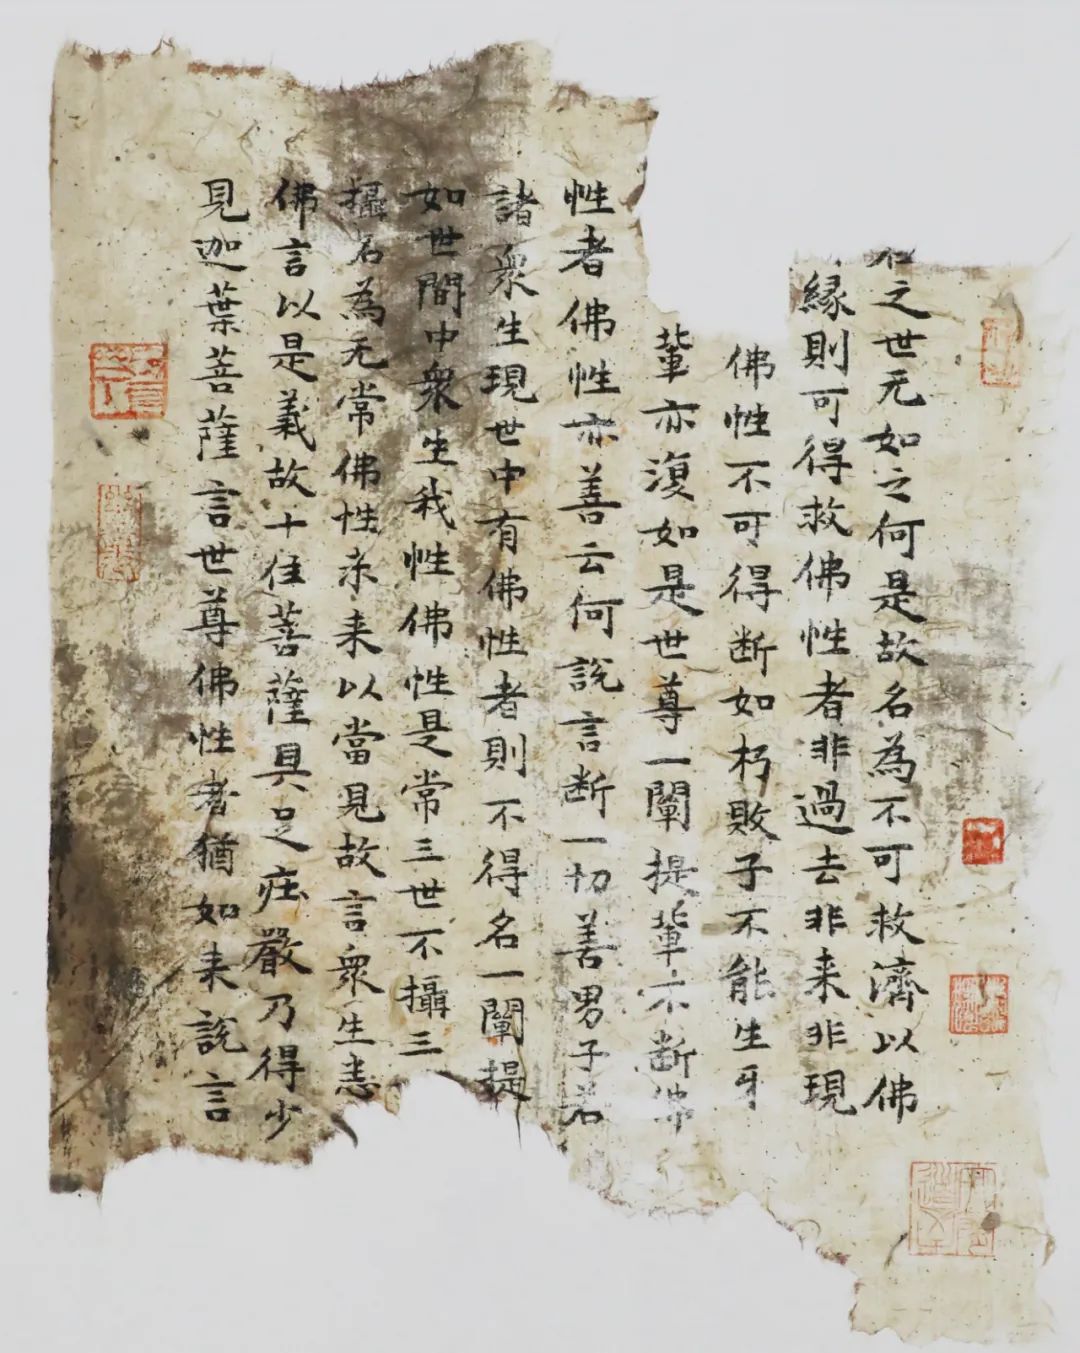 之世无如之何是故名為不可救濟以佛
緣則可得救佛性者非過去非来非現
佛性不可得断如朽敗子不能生牙
輩亦復如是世尊一闡提輩不断佛
性者佛性亦善云何說言断一切善男子若
諸衆生現世中有佛性者則不得名一闡提
如世間中衆生我性佛性是常三世不攝三
攝名為无常佛性未来以當見故言衆生悉
佛言以是義故十住菩薩具足庄嚴乃得少
見迦葉菩薩言世尊佛性者猶如来說言